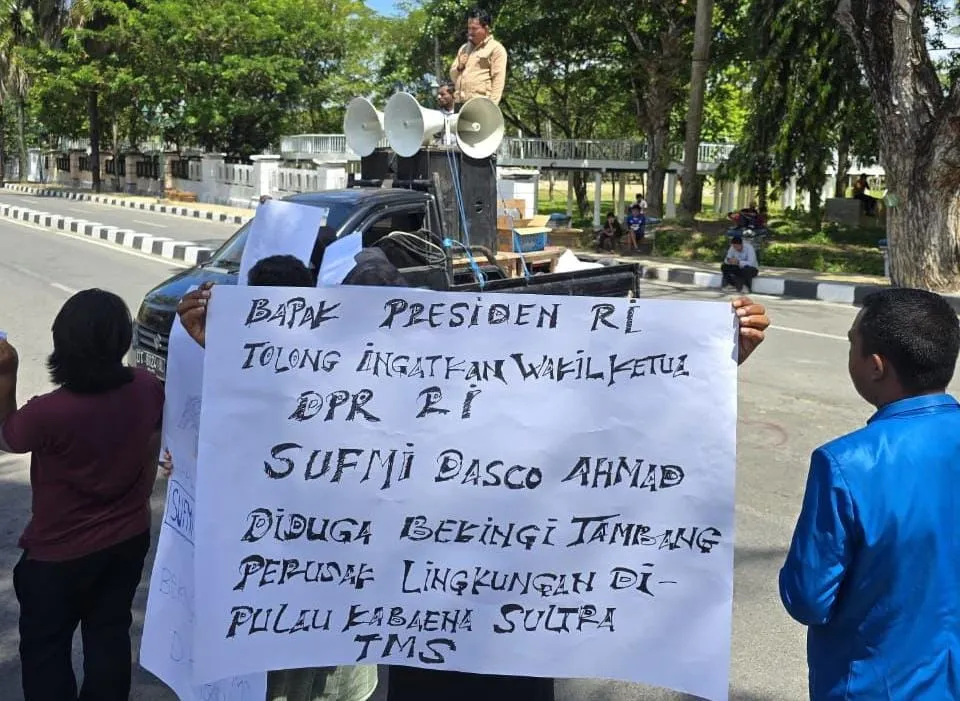 BAPAK PRESIDEN RI
TOLONG INGATKAN WAKIL KETUA
DPR RI
SUFMI DASCO AHMAD
DIDUGA BEKINGI TAMBANG
PERUSAK LINGKUNGAN DI-
PULAU KABAENA SULTRA
TMS
SUFM